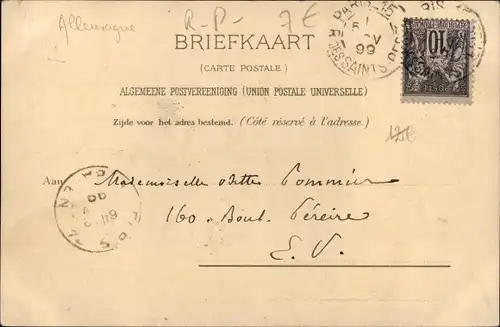 Allemagne
R-P-
7€
BRIEFKAART
(CARTE POSTALE)
ALGEMEENE POSTVEREENIGING (UNION POSTALE UNIVERSELLE)
Zijde voor het adres bestemd. (Côté réservé à l'adresse.)
PARIS
99
R. DES SAINTS-PÈRES
10
POSTE
12€
Aan Mademoiselle Odette Pommier
160 - Boul. Péreire
E. V.